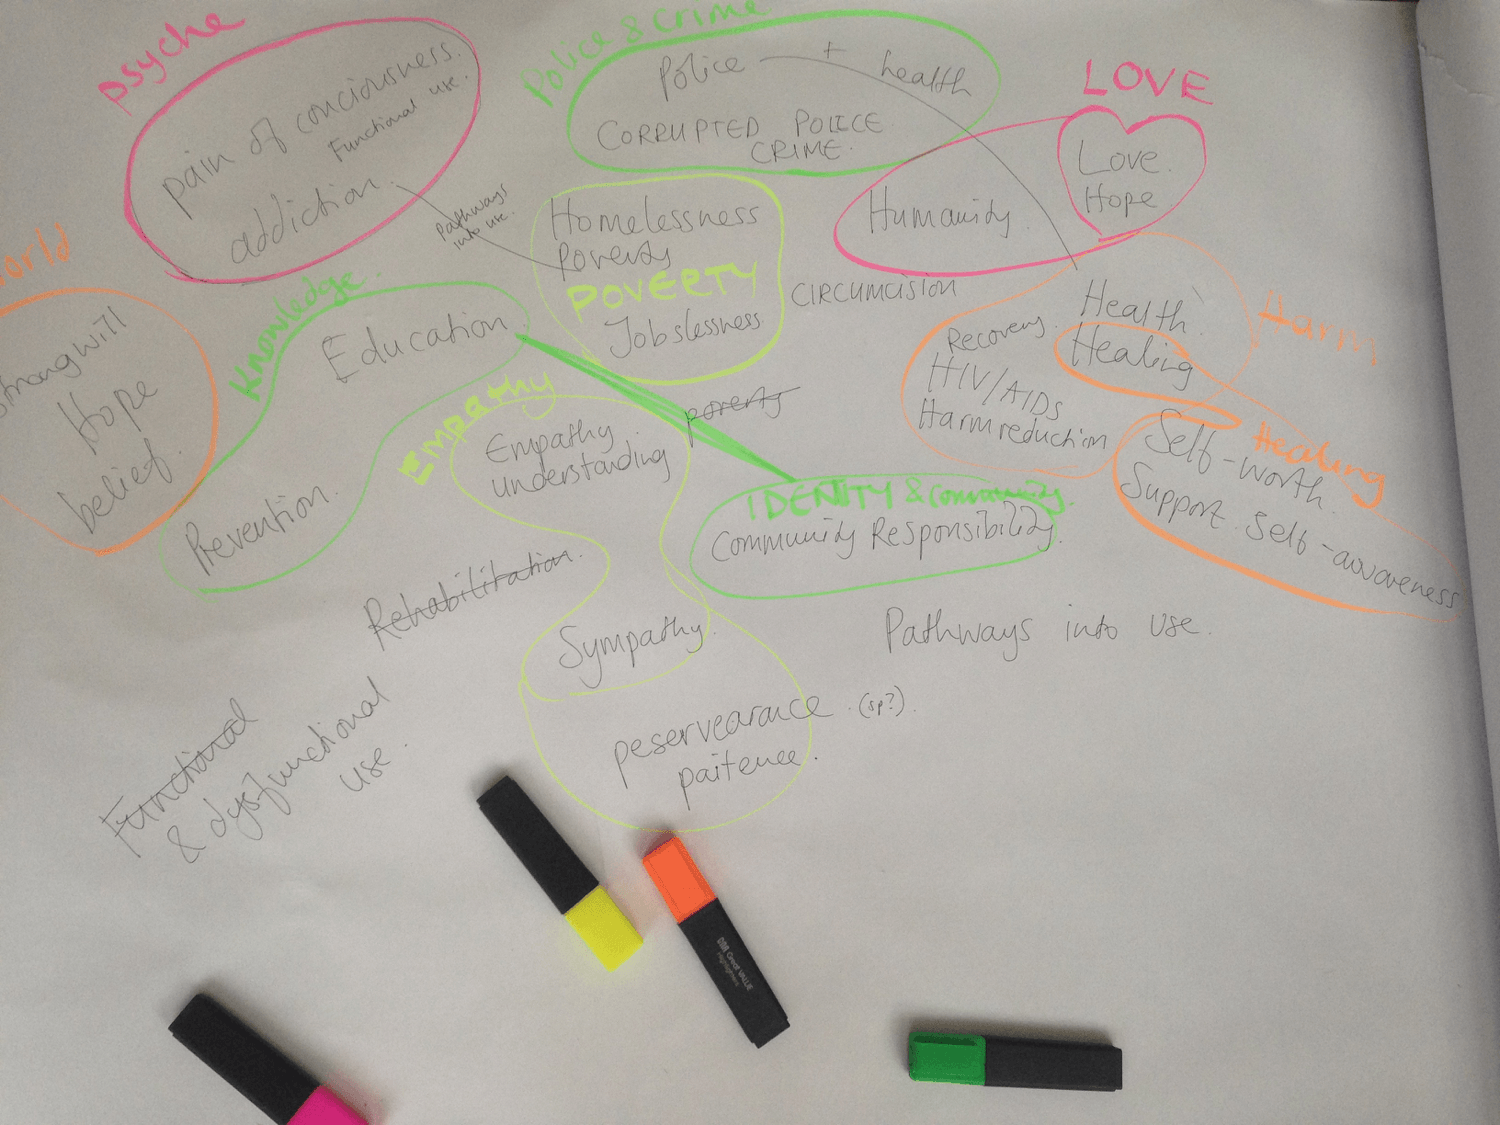 Psyche
pain of conciousness.
Functional use.
addiction.
Pathways
into use.
Police & Crime
Police + health
CORRUPTED POLICE
CRIME.
LOVE
Love.
Hope
Humanity.
Homelessness
Poverty
POVERTY
Jobslessness
CIRCUMCISION
orld
Strong will
Hope
belief.
Knowledge
Education
Prevention.
EMPathy
Empathy
understanding
Sympathy.
peservearance. (sp?).
paitence.
poverty
IDENITY & Community.
Community Responsibility.
Harm
Health
Healing
Recovery.
HIV/AIDS
Harm reduction
Healing
Self-worth.
Support. Self-awareness
Rehabilitation.
Pathways into use.
Functional
& dysfunctional
use.
Great VALUE
Highlighters